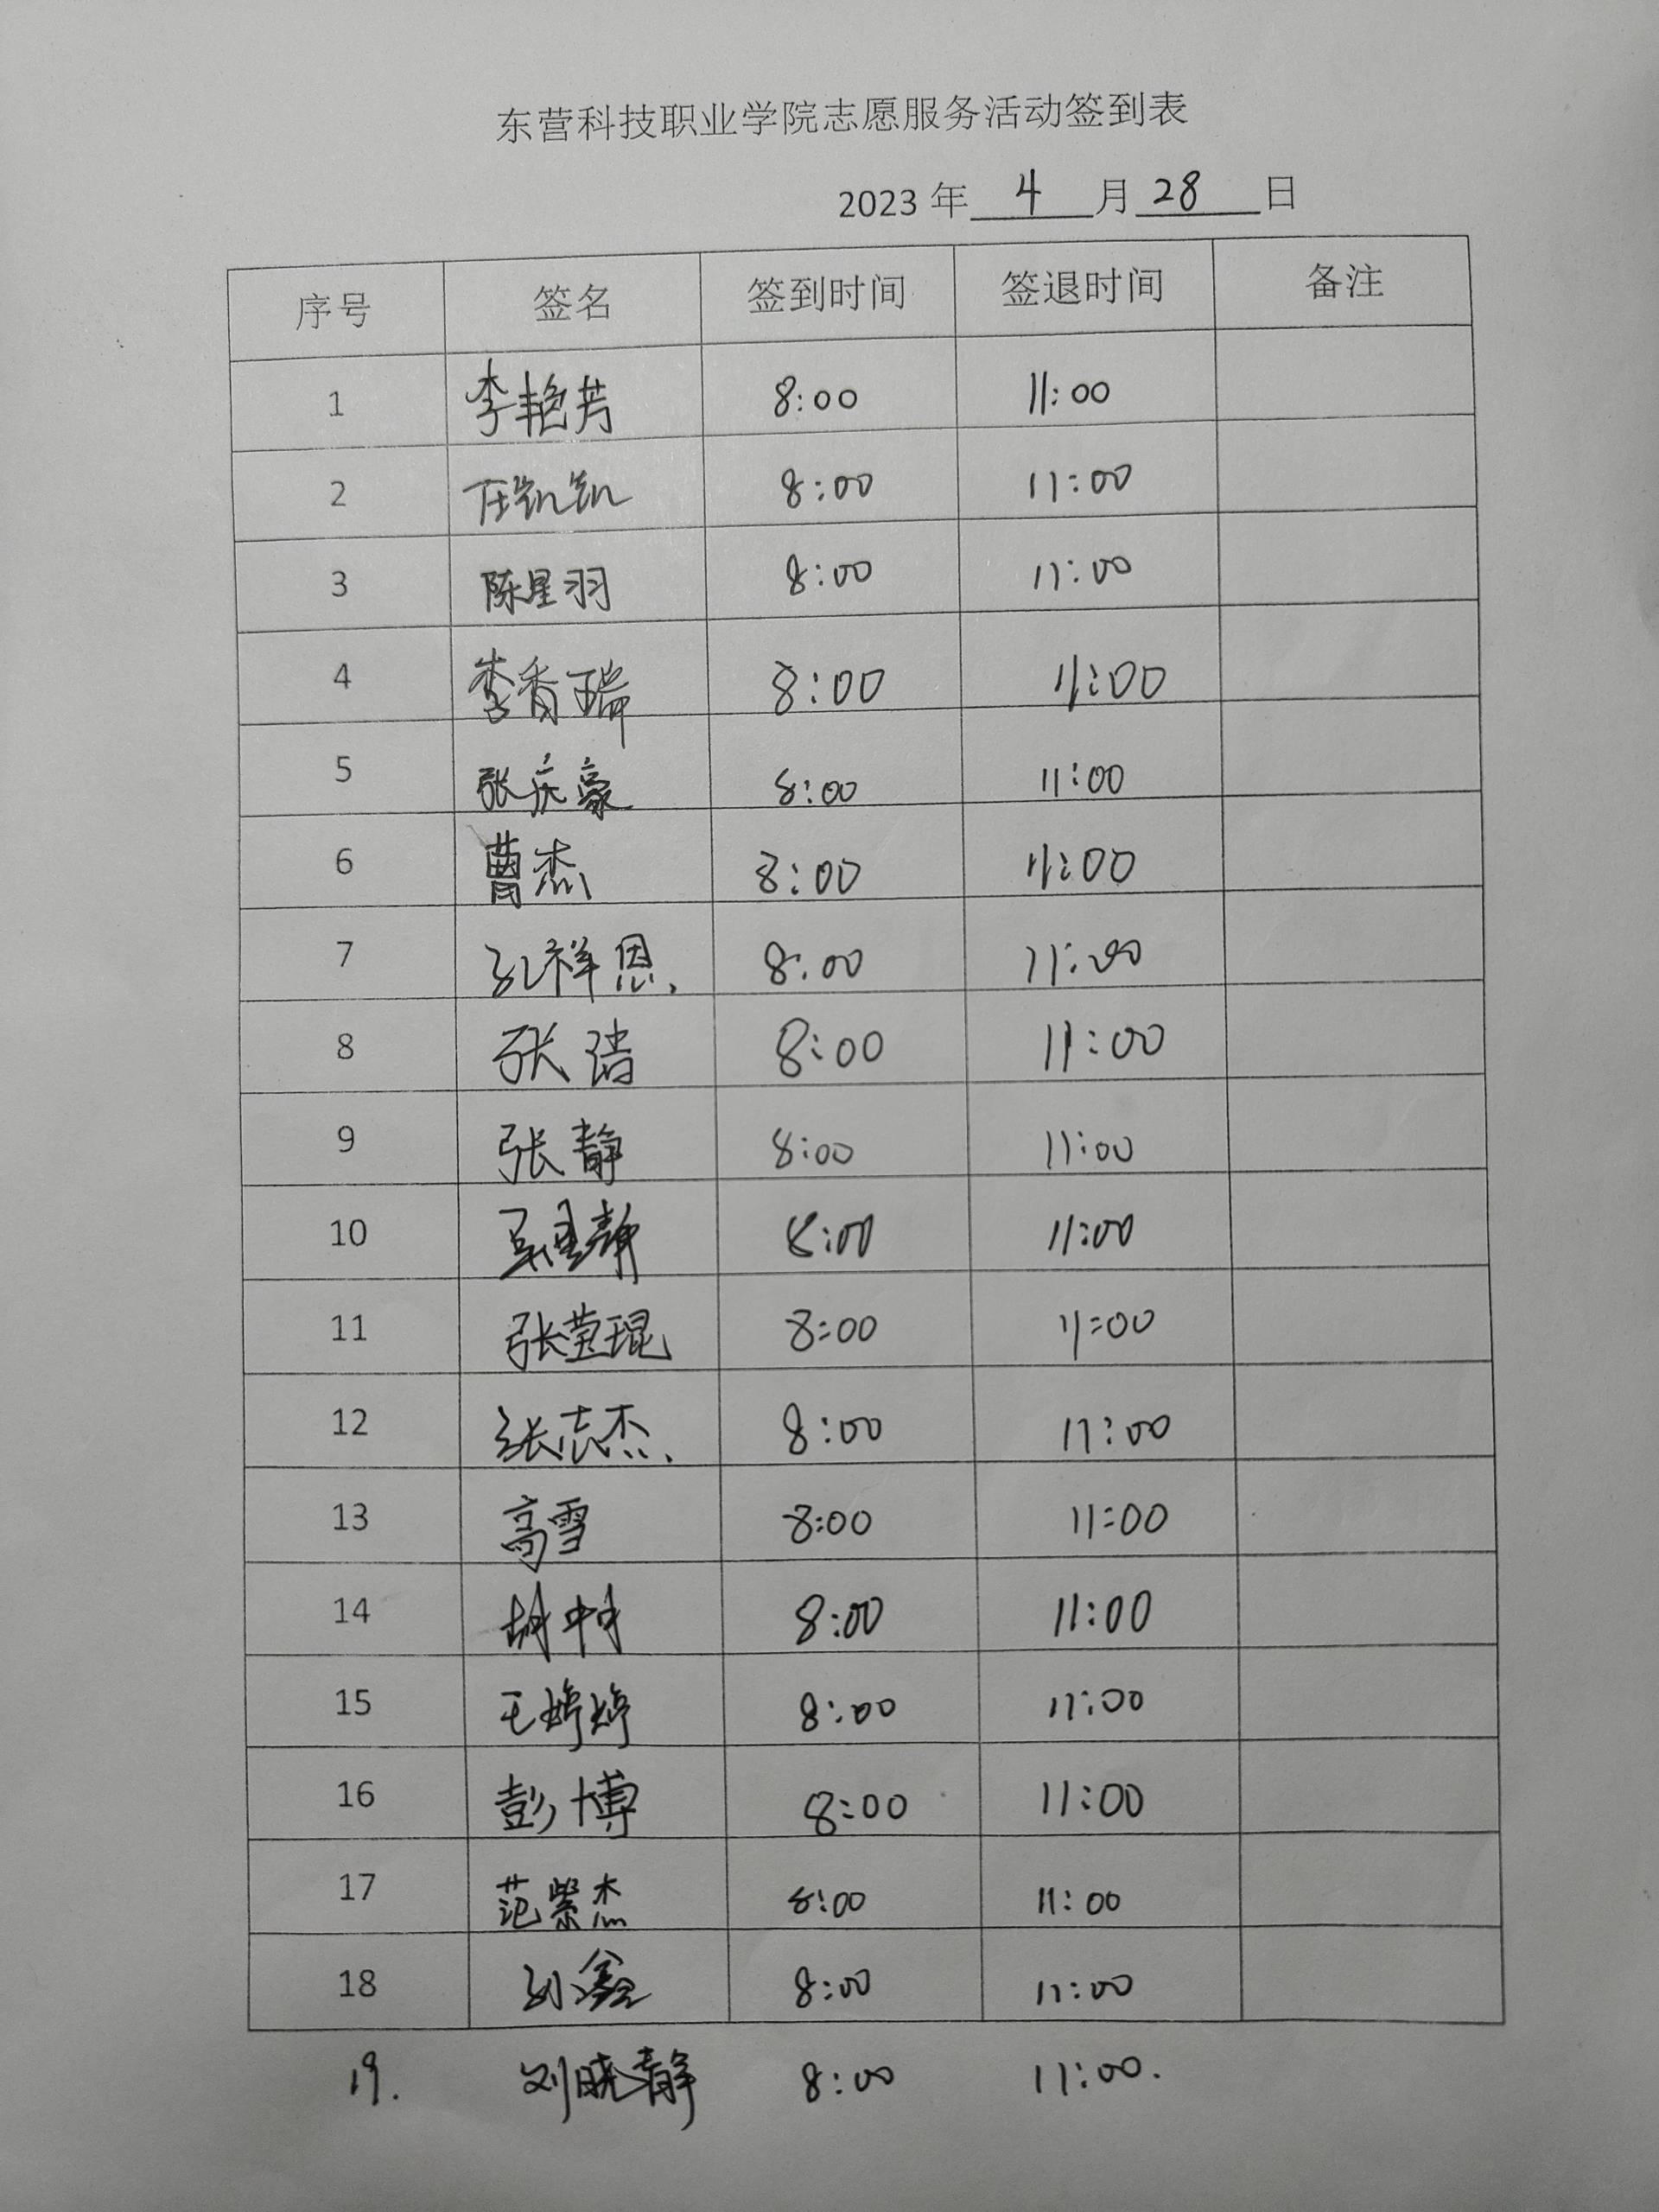 东营科技职业学院志愿服务活动签到表
2023 年 4 月 28 日
序号 签名 签到时间 签退时间 备注
1 李艳芳 8:00 11:00
2 任凯凯 8:00 11:00
3 陈星羽 8:00 11:00
4 李香瑞 8:00 11:00
5 张庆豪 8:00 11:00
6 曹杰 8:00 11:00
7 孔祥恩 8:00 11:00
8 张 8:00 11:00
9 张静 8:00 11:00
10 8:00 11:00
11 张莹琨 8:00 11:00
12 张志杰 8:00 11:00
13 高雪 8:00 11:00
14 8:00 11:00
15 王婷婷 8:00 11:00
16 彭博 8:00 11:00
17 范紫杰 8:00 11:00
18 刘鑫 8:00 11:00
19. 刘晓静 8:00 11:00.